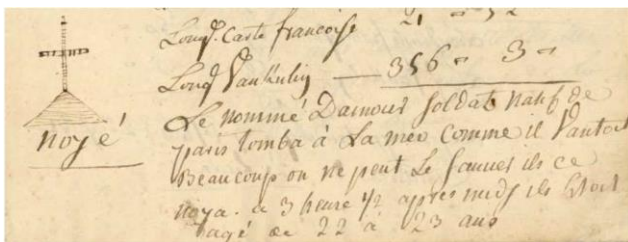 Longd. Carte francoise 21 " 52
Longd Vankulin 356 " 3 "
noyé
Le nommé Damour soldat natif de
paris tomba à La mer Comme il Vantoit
Beaucoup on ne peut Le sauver ils ce
noya. a 3 heure 1/2 apres midy ils Etoit
agé de 22 à 23 ans